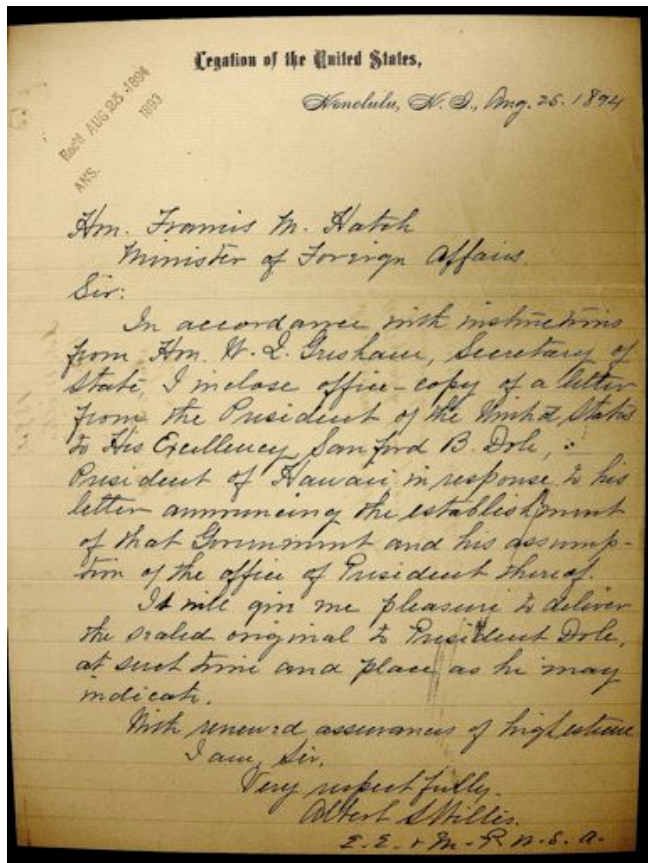 Legation of the United States,
Honolulu, H. I., Aug. 25. 1894
Rec'd AUG 25 1894
1893
ANS.
Hon. Francis M. Hatch
Minister of Foreign Affairs.
Sir:
In accordance with instructions
from Hon. W. Q. Gresham, Secretary of
State, I inclose office-copy of a letter
from the President of the United States
to His Excellency Sanford B. Dole,
President of Hawaii in response to his
letter announcing the establishment
of that Government and his assump-
tion of the office of President thereof.
It will give me pleasure to deliver
the sealed original to President Dole,
at such time and place as he may
indicate.
With renewed assurances of high esteem
I am, Sir,
Very respectfully.
Albert S Willis.
E. E. & M. P. U. S. A.